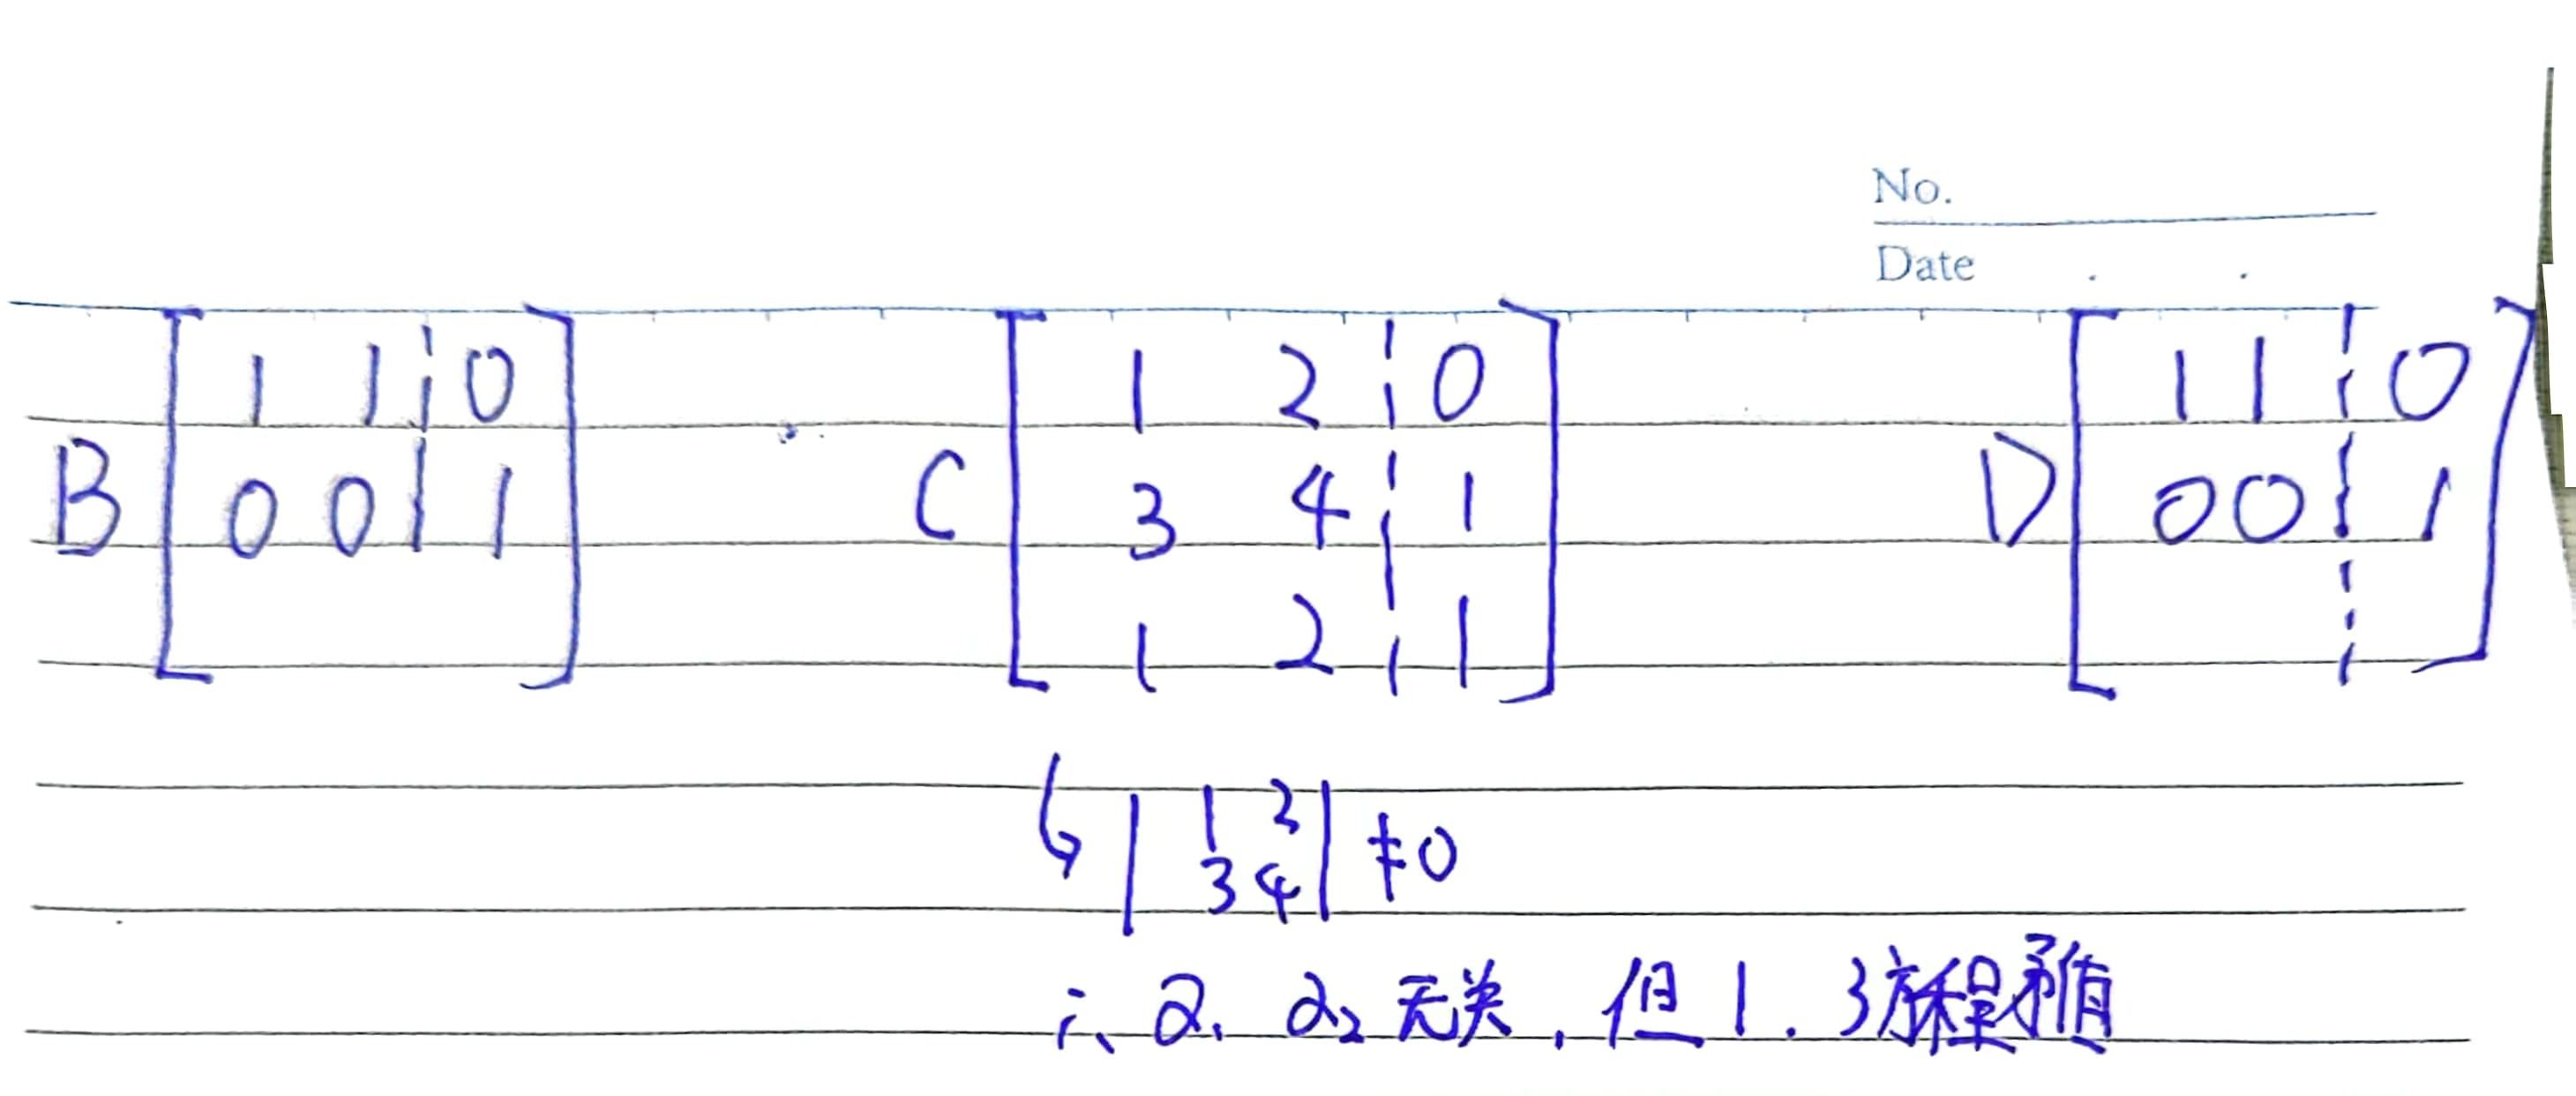 No.
Date . .
B [ 1 1 ¦ 0
0 0 ¦ 1 ]
C [ 1 2 ¦ 0
3 4 ¦ 1
1 2 ¦ 1 ]
D [ 1 1 ¦ 0
0 0 ¦ 1 ]
↳ | 1 2
3 4 | ≠0
∴ α₁ α₂ 无关, 但1.3方程矛盾